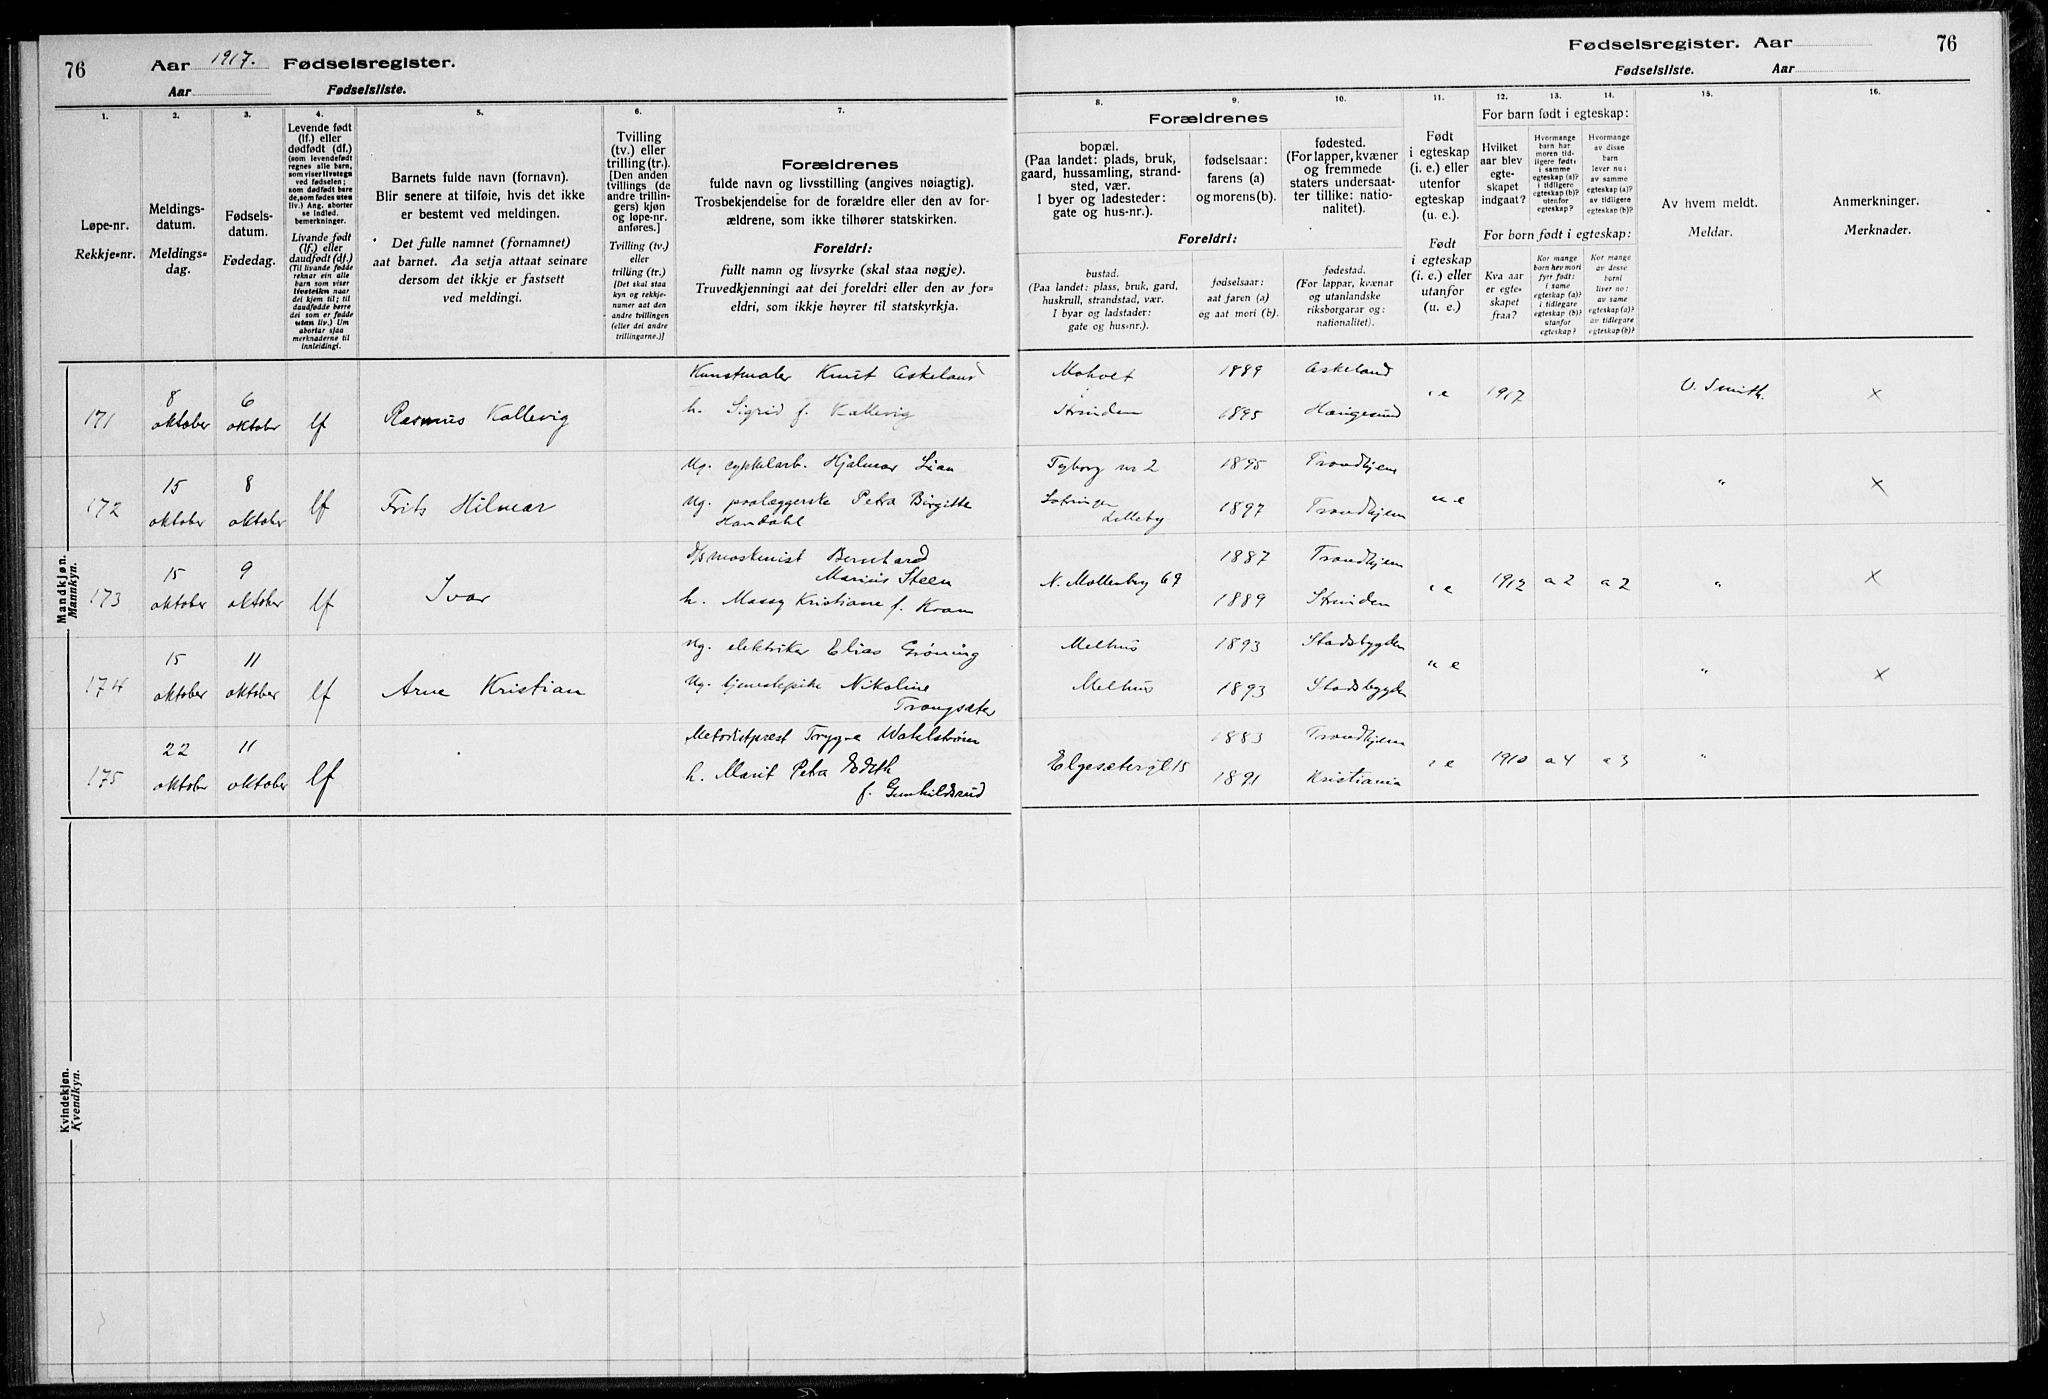 76
Aar 1917. Fødselsregister.
Aar Fødselsliste.
1.
2.
3.
4.
5.
6.
7.
Løpe-nr.
Rekkje-nr.
Meldings-
datum.
Meldings-
dag.
Fødsels-
datum.
Fødedag.
Levende født
(lf.) eller
dødfødt (df.)
(som levendefødt
regnes alle barn,
som viser livstegn
ved fødselen;
som dødfødt bare
de, som fødes uten
liv.) Ang. aborter
se indled.
bemerkninger.
Livande født
(lf.) eller
daudfødt (df.)
(Til livande fødde
reknar ein alle
barn som viser
livsteikn naar
dei kjem til; til
daudfødde berre
dei som er fødde
utan liv.) Um
abortar sjaa
merknaderne til
innleiding!.
Barnets fulde navn (fornavn).
Blir senere at tilføie, hvis det ikke
er bestemt ved meldingen.
Det fulle namnet (fornamnet)
aat barnet. Aa setja attaat seinare
dersom det ikkje er fastsett
ved meldingi.
Tvilling
(tv.) eller
trilling (tr.).
[Den anden
tvillings (de
andre trillin-
gers) kjøn
og løpe-nr.
anføres.]
Tvilling (tv.)
eller
trilling (tr.)
[Det skal staa
kyn og rekkje-
numer aat den
andre tvillingen
(eller dei andre
trillingarne.)]
Forældrenes
fulde navn og livsstilling (angives nøiagtig).
Trosbekjendelse for de forældre eller den av for-
ældrene, som ikke tilhører statskirken.
Foreldri:
fullt namn og livsyrke (skal staa nøgje).
Truvedkjenningi aat dei foreldri eller den av for-
eldri, som ikkje høyrer til statskyrkja.
Mandkjøn.
Mannkyn.
171
8
oktober
6
oktober
lf
Rasmus Kallevig
Kunstmaler Knut Askeland
h. Sigrid f. Kallevig
172
15
oktober
8
oktober
lf
Frits Hilmar
Ug. cykkelarb. Hjalmar Lian
Ug. paalæggerske Petra Birgitte
Handahl
173
15
oktober
9
oktober
lf
Ivar
D/s maskinist Bernhard
Marius Steen
h. Massy Kristiane f. Kran
174
15
oktober
11
oktober
lf
Arne Kristian
Ug. elektriker Elias Grøning
Ug. tjenestepike Nikoline
Trangsæter
175
22
oktober
11
oktober
lf
Metodistprest Trygve Wahlstrøm
h. Marit Petra Edith
f. Gunhildsrud
Kvindekjøn.
Kvendkyn.
Fødselsregister. Aar
76
Fødselsliste. Aar
8.
9.
10.
11.
12.
13.
14.
15.
16.
Forældrenes
bopæl.
(Paa landet: plads, bruk,
gaard, hussamling, strand-
sted, vær.
I byer og ladesteder:
gate og hus-nr.).
fødselsaar:
farens (a)
og morens (b).
fødested.
(For lapper, kvæner
og fremmede
staters undersaat-
ter tillike: natio-
nalitet).
Foreldri:
bustad.
(Paa landet: plass, bruk, gard,
huskrull, strandstad, vær.
I byar og ladstader:
gate og hus-nr.).
fødselsaar:
aat faren (a)
og aat mori (b).
fødestad.
(For lappar, kvænar
og utanlandske
riksborgarar og:
nationalitet).
Født
i egteskap
(i. e.) eller
utenfor
egteskap
(u. e.).
Født
i egteskap
(i. e.) eller
utanfor
(u. e.).
For barn født i egteskap:
Hvilket
aar blev
egte-
skapet
indgaat?
Hvormange
barn har
moren tid-
ligere født:
i samme
egteskap (a)?
i tidligere
egteskap (b)?
utenfor
egteskap?
Hvormange
av disse
barn
lever nu:
av samme
egteskap (a)?
av tidligere
egteskap (b)?
For born født i egteskap:
Kva aar
er egte-
skapet
fraa?
Kor mange
born hev mori
fyrr født:
i same
egteskap (a)?
i tidlegare
egteskap (b)?
utanfor
egteskap?
Kor mange
av desse
borni
liver no:
av same
egteskap (a)?
av tidlegare
egteskap (b)?
Av hvem meldt.
Meldar.
Anmerkninger.
Merknader.
Moholt
Strinden
1889
1895
Askeland
Haugesund
i e
1917
O. Smith.
×
Tyborg nr 2
Lilleby
1895
1897
Trondhjem
Trondhjem
u e
"
×
N. Møllenberg 69
1887
1889
Trondhjem
Strinden
i e
1912
a 2
a 2
"
×
Melhus
Melhus
1893
1893
Stadsbygden
Stadsbygden
u e
"
×
Elgesætergt 15
1883
1891
Trondhjem
Kristiania
i e
1910
a 4
a 3
"